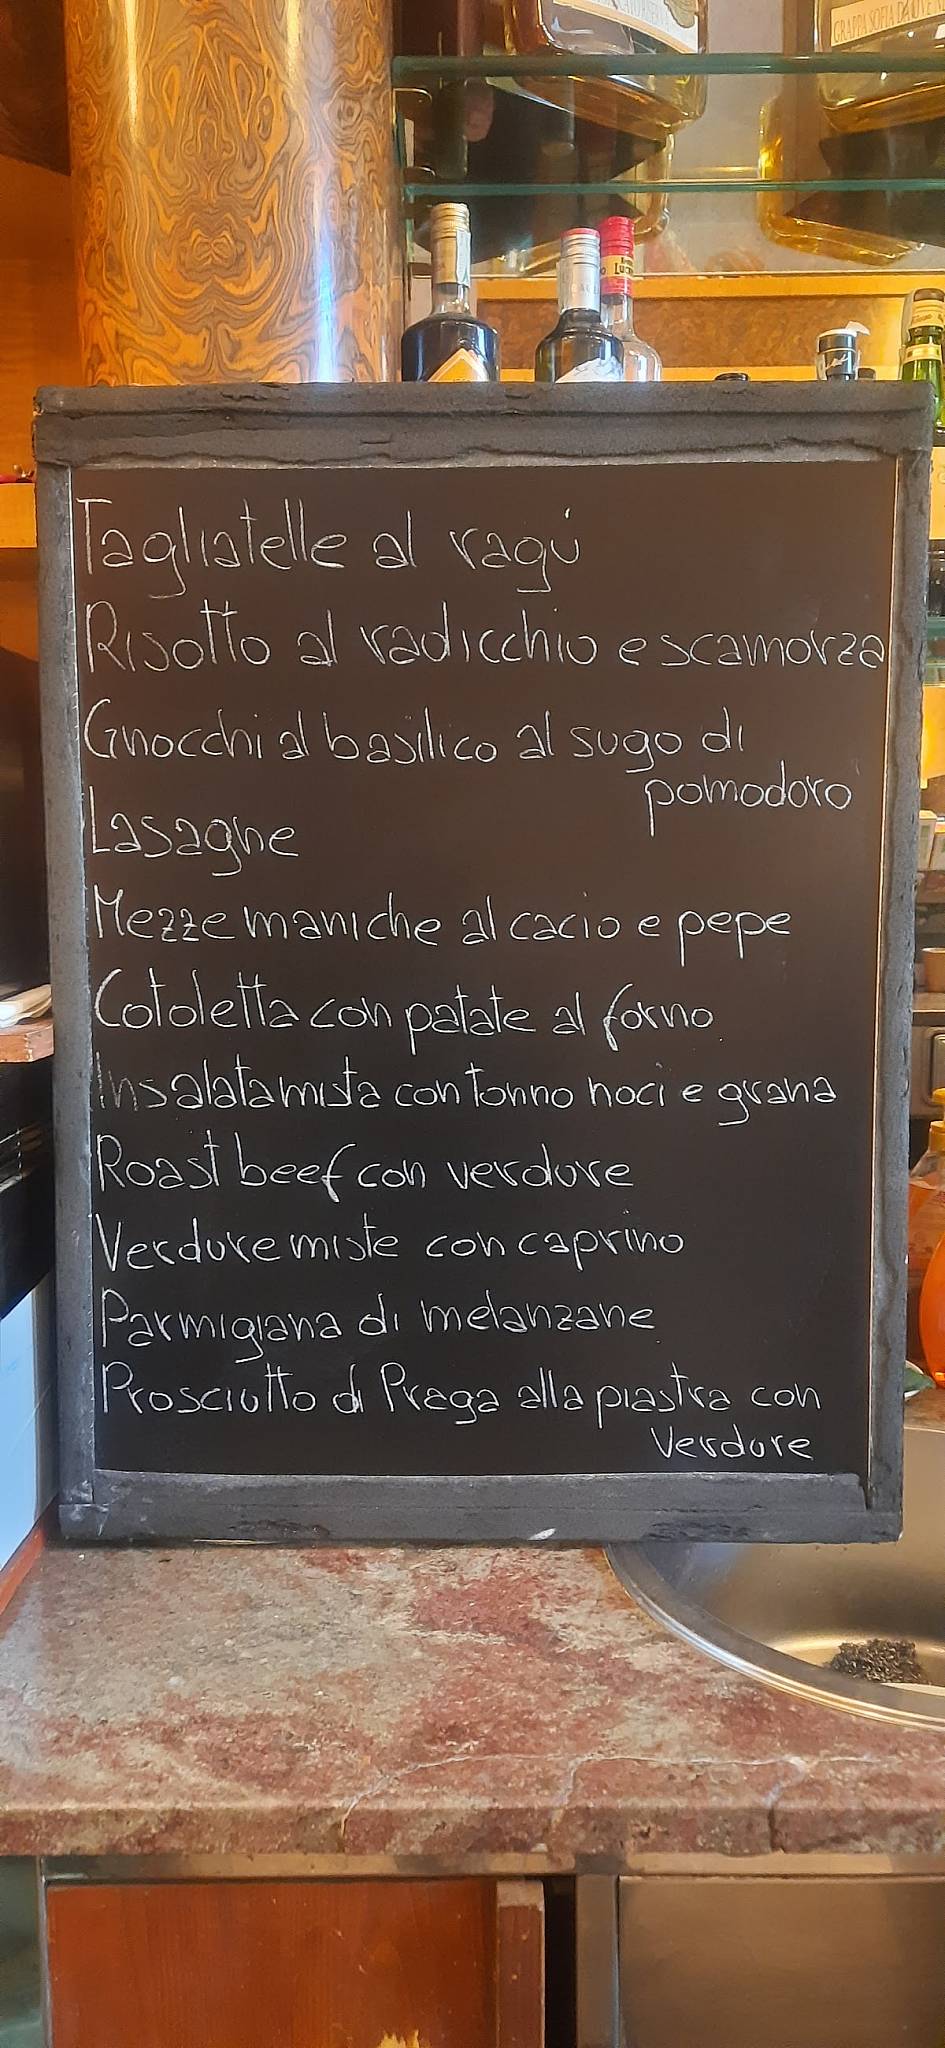 GRAPPA SOFIA
Tagliatelle al ragù
Risotto al radicchio e scamorza
Gnocchi al basilico al sugo di
pomodoro
Lasagne
Mezze maniche al cacio e pepe
Cotoletta con patate al forno
Insalata mista con tonno noci e grana
Roast beef con verdure
Verdure miste con caprino
Parmigiana di melanzane
Prosciutto di Praga alla piastra con
verdure